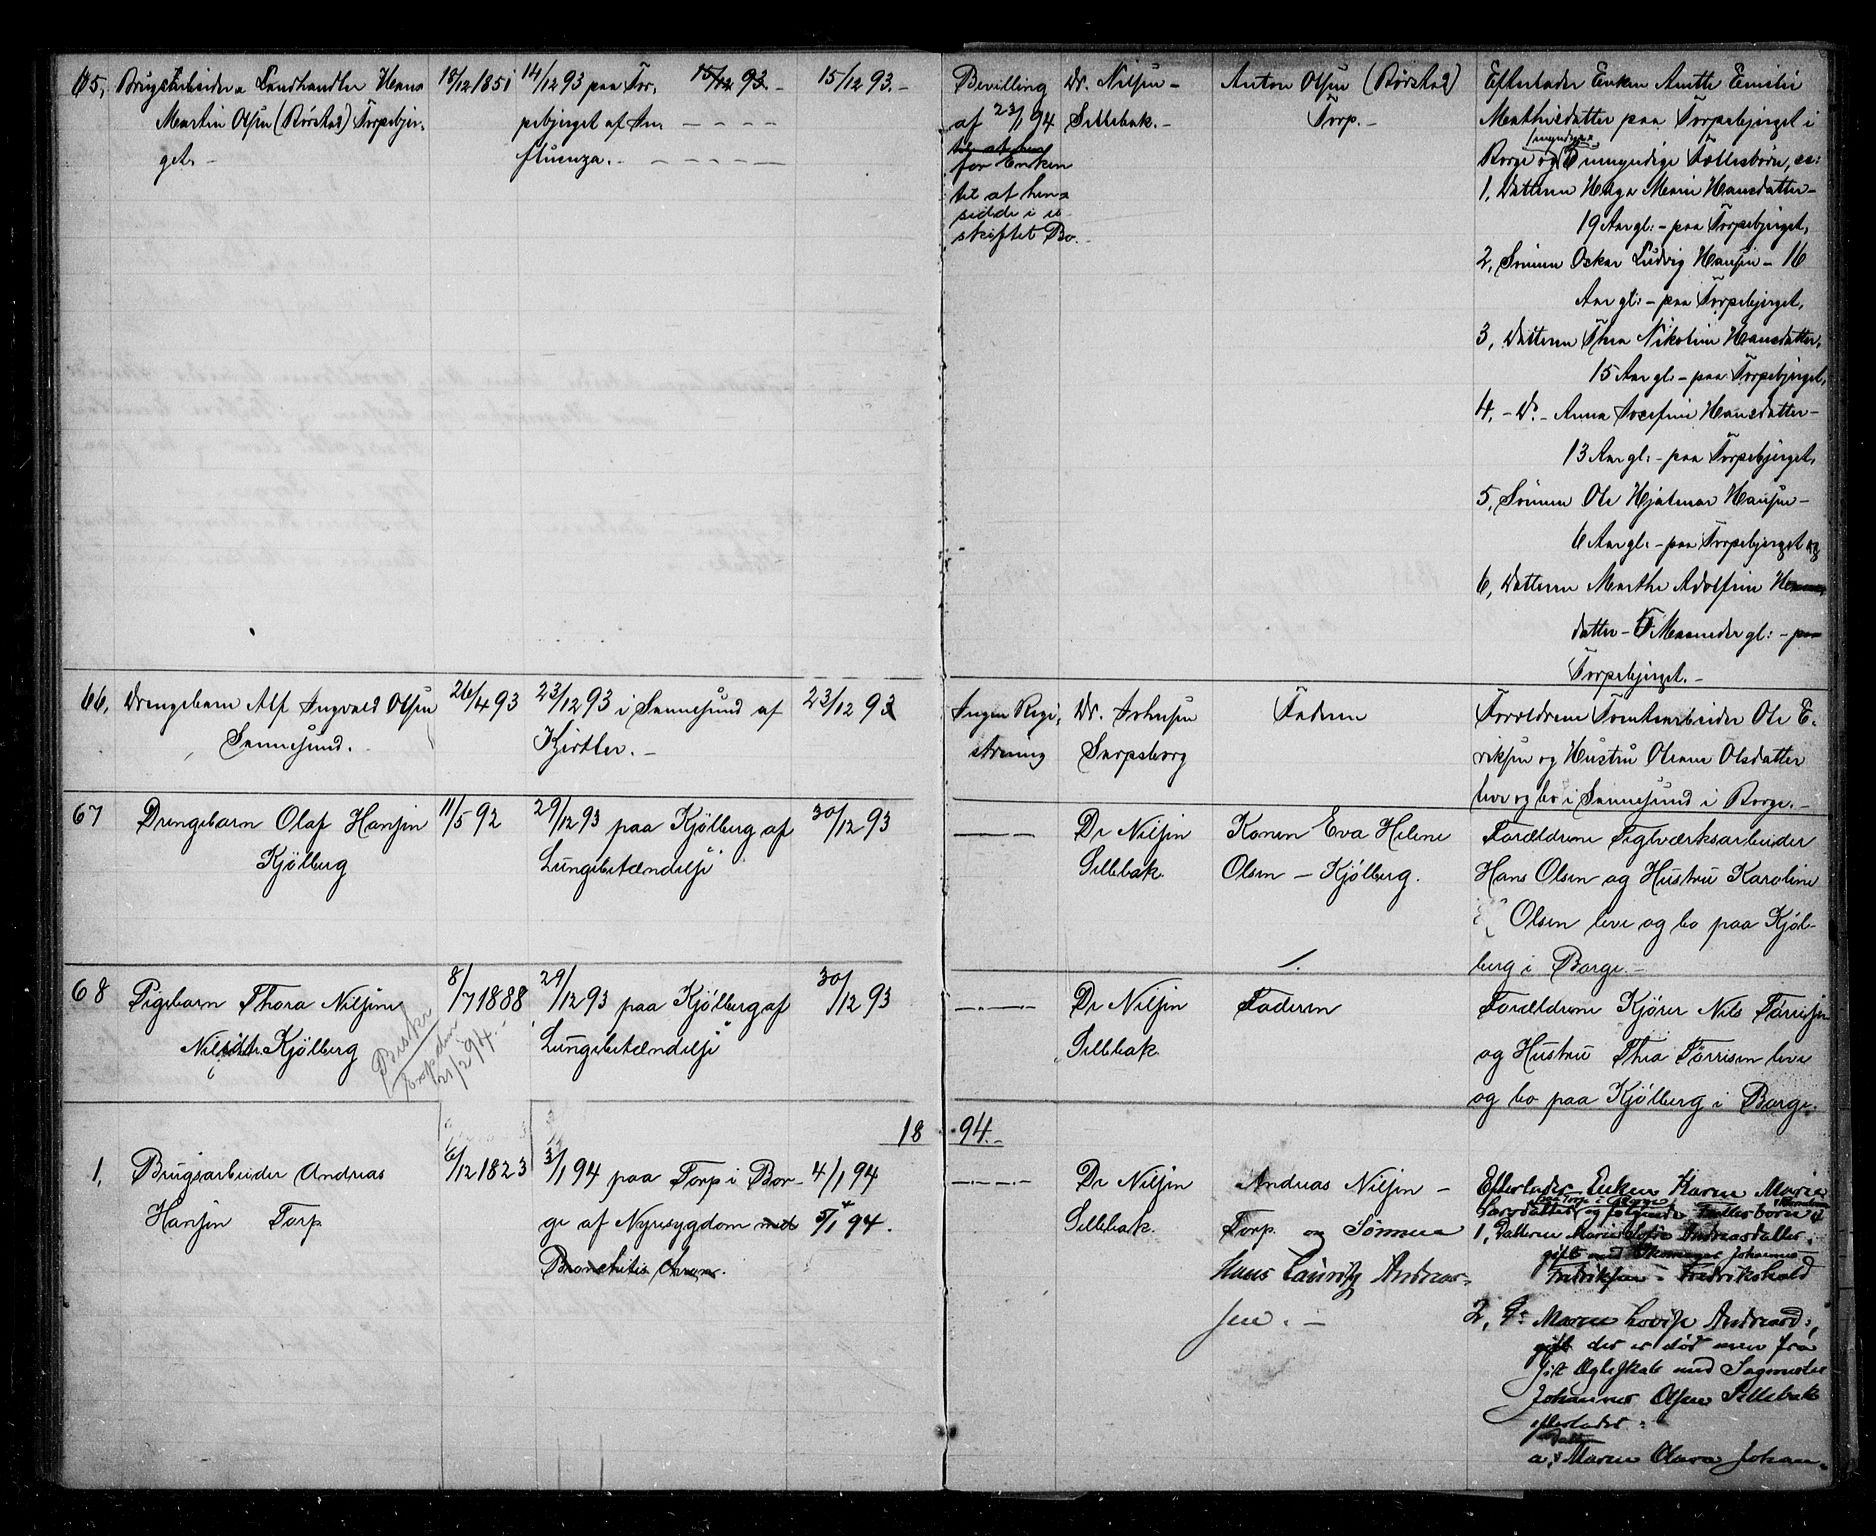 65, Brugsarbeider & Landhandler Hans
Martin Olsen (Rörstad) Torpebjer-
get. -
18/12 1851
14/12 93 paa Tor-
pebjerget af In-
fluenza. -
15/12 93. -
15/12 93. -
Bevilling
af 23/1 94
for Enken
til at hen-
sidde i u-
skiftet Bo.
Dr. Nilsen -
Sellebak. -
Anton Olsen (Rörstad)
Torp. -
Efterlader Enken Anette Emilie
Mathisdatter paa Torpebjerget i
Borge og umyndige Fællesbörn, ss:
1, Datteren Helga Marie Hansdatter -
19 Aar gl: - paa Torpebjerget,
2, Sönnen Oskar Ludvig Hansen - 16
Aar gl: - paa Torpebjerget,
3, Datteren Thea Nikoline Hansdatter,
15 Aar gl: - paa Torpebjerget,
4, - Do. - Anna Josefine Hansdatter -
13 Aar gl: - paa Torpebjerget,
5, Sönnen Ole Hjalmar Hansen -
6 Aar gl: - paa Torpebjerget og
6, Datteren Marthe Adolfine Hans
datter - Maaneder gl: - paa
Torpebjerget. -
66, Drengebarn Alf Ingvald Olsen
Sannesund.
26/4 93
23/12 93 i Sannesund af
Kjertler. -
23/12 93
Ingen Regi-
strering
Dr. Johnsen
Sarpsborg
Faderen
Forældrene Tomtearbeider Ole E-
riksen og Hustru Oleane Olsdatter
leve og bo i Sannesund i Borge. -
67 Drengebarn Olaf Hansen
Kjölberg
11/5 92
29/12 93 paa Kjölberg af
Lungebetændelse
30/12 93
Dr Nilsen
Sellebak.
Konen Eva Helene
Olsen - Kjölberg.
Forældrene Teglværksarbeider
Hans Olsen og Hustru Karoline
Olsen leve og bo paa Kjöl-
berg i Borge. -
68 Pigebarn Thora Nilsine
Nilsdtr. Kjölberg
8/7 1888
29/12 93 paa Kjölberg af
Lungebetændelse
30/12 93
Dr Nilsen
Sellebak.
Faderen
Forældrene Kjörer Nils Törrisen
og Hustru Thea Törrisen leve
og bo paa Kjölberg i Borge.
Beskr
Torp den
21/2 94. -
1894. -
1, Brugsarbeider Andreas
Hansen Torp
6/12 1823
3/1 94 paa Torp i Bor-
ge af Nyresygdom med
Bronchitis chron.
4/1 94
5/1 94.
Dr Nilsen
Sellebak.
Andreas Nilsen -
Torp. og Sönnen
Hans Lauritz Andrea-
sen. -
Efterlader Enken Karen Marie
paa Torp i Borge
Larsdatter og fölgende Fællesbörn
1, Datteren Marie Sofie Andreasdatter,
gift med Skomager Johannes
Fredriksen - Fredrikshald
2, Do Maren Lovise Andreasd:,
gift der er död men fra
sit Ægteskab med Sagmester
Johannes Olsen Sellebak
efterlader:
Datter
a, Maren Olava Johan-